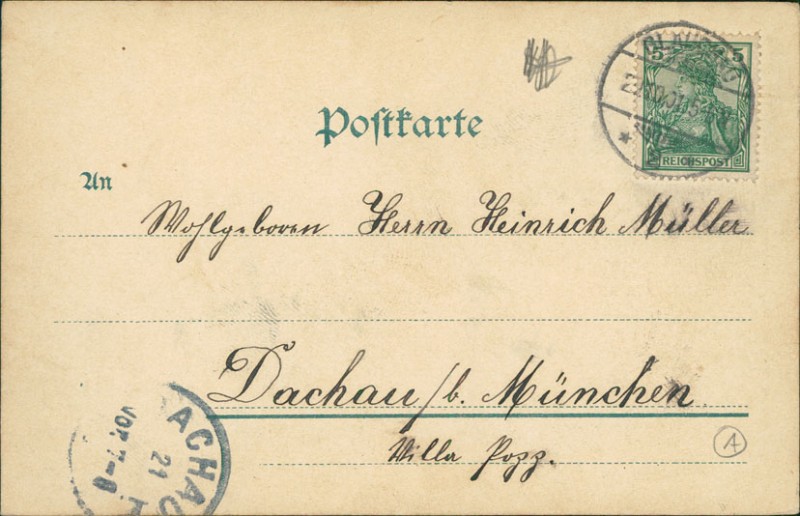 5 5
REICHSPOST
Postkarte
An
Wohlgeboren Herrn Heinrich Müller
Dachau /b. München.
Villa Popp.
DACHAU
21
VOR. 7-8
A